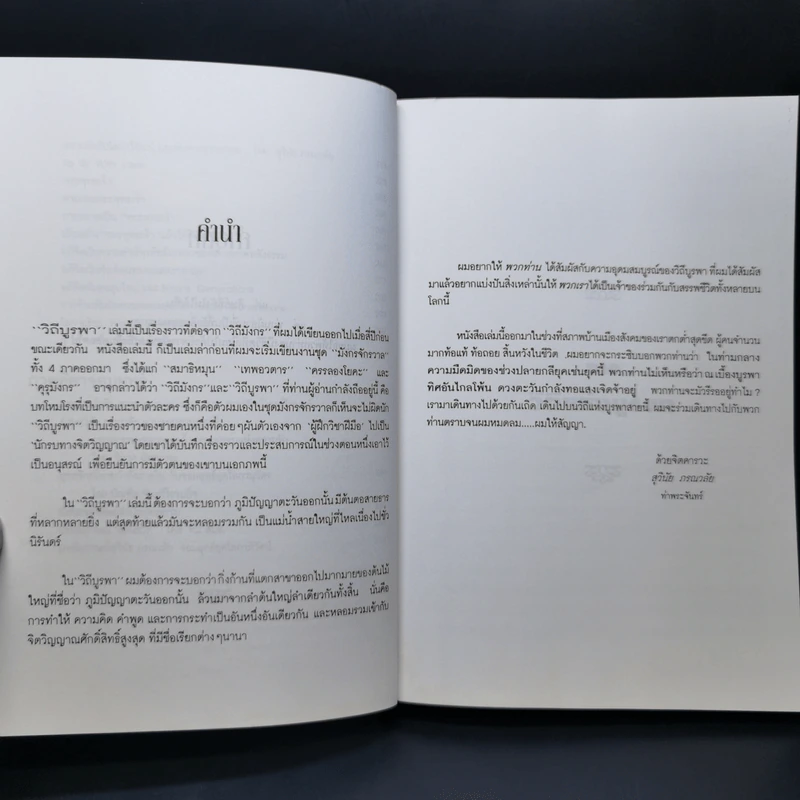 คำนำ
``วิถีบูรพา'' เล่มนี้เป็นเรื่องราวที่ต่อจาก ``วิถีมังกร'' ที่ผมได้เขียนออกไปเมื่อสี่ปีก่อน
ขณะเดียวกัน หนังสือเล่มนี้ ก็เป็นเล่มล่าก่อนที่ผมจะเริ่มเขียนงานชุด ``มังกรจักรวาล''
ทั้ง 4 ภาคออกมา ซึ่งได้แก่ ``สมาธิหมุน'' ``เทพอวตาร'' ``ครรลองโยคะ'' และ
``คุรุมังกร'' อาจกล่าวได้ว่า ``วิถีมังกร''และ ``วิถีบูรพา'' ที่ท่านผู้อ่านกำลังถืออยู่นี้ คือ
บทโหมโรงที่เป็นการแนะนำตัวละคร ซึ่งก็คือตัวผมเองในชุดมังกรจักรวาลก็เห็นจะไม่ผิดนัก
``วิถีบูรพา'' เป็นเรื่องราวของชายคนหนึ่งที่ค่อยๆผันตัวเองจาก `ผู้ฝึกวิชาฝีมือ' ไปเป็น
`นักรบทางจิตวิญญาณ' โดยเขาได้บันทึกเรื่องราวและประสบการณ์ในช่วงตอนหนึ่งเอาไว้
เป็นอนุสรณ์ เพื่อยืนยันการมีตัวตนของเขาบนเอกภพนี้
ใน ``วิถีบูรพา'' เล่มนี้ ต้องการจะบอกว่า ภูมิปัญญาตะวันออกนั้น มีต้นตอสายธาร
ที่หลากหลายยิ่ง แต่สุดท้ายแล้วมันจะหลอมรวมกัน เป็นแม่น้ำสายใหญ่ที่ไหลเนื่องไปชั่ว
นิรันดร์
ใน``วิถีบูรพา'' ผมต้องการจะบอกว่า กิ่งก้านที่แตกสาขาออกไปมากมายของต้นไม้
ใหญ่ที่ชื่อว่า ภูมิปัญญาตะวันออกนั้น ล้วนมาจากลำต้นใหญ่ลำเดียวกันทั้งสิ้น นั่นคือ
การทำให้ ความคิด คำพูด และการกระทำเป็นอันหนึ่งอันเดียวกัน และหลอมรวมเข้ากับ
จิตวิญญาณศักดิ์สิทธิ์สูงสุด ที่มีชื่อเรียกต่างๆนานา
ผมอยากให้ พวกท่าน ได้สัมผัสกับความอุดมสมบูรณ์ของวิถีบูรพา ที่ผมได้สัมผัส
มาแล้วอยากแบ่งปันสิ่งเหล่านั้นให้ พวกเรา ได้เป็นเจ้าของร่วมกันกับสรรพชีวิตทั้งหลายบน
โลกนี้
หนังสือเล่มนี้ออกมาในช่วงที่สภาพบ้านเมืองสังคมของเราตกต่ำสุดขีด ผู้คนจำนวน
มากท้อแท้ ท้อถอย สิ้นหวังในชีวิต ผมอยากจะกระซิบบอกพวกท่านว่า ในท่ามกลาง
ความมืดมิดของช่วงปลายกลียุคเช่นยุคนี้ พวกท่านไม่เห็นหรือว่า ณ เบื้องบูรพา
ทิศอันไกลโพ้น ดวงตะวันกำลังทอแสงเจิดจ้าอยู่ พวกท่านจะมัวรีรออยู่ทำไม ?
เรามาเดินทางไปด้วยกันเถิด เดินไปบนวิถีแห่งบูรพาสายนี้ ผมจะร่วมเดินทางไปกับพวก
ท่านตราบจนผมหมดลม.....ผมให้สัญญา.
ด้วยจิตคารวะ
สุวินัย ภรณวลัย
ท่าพระจันทร์